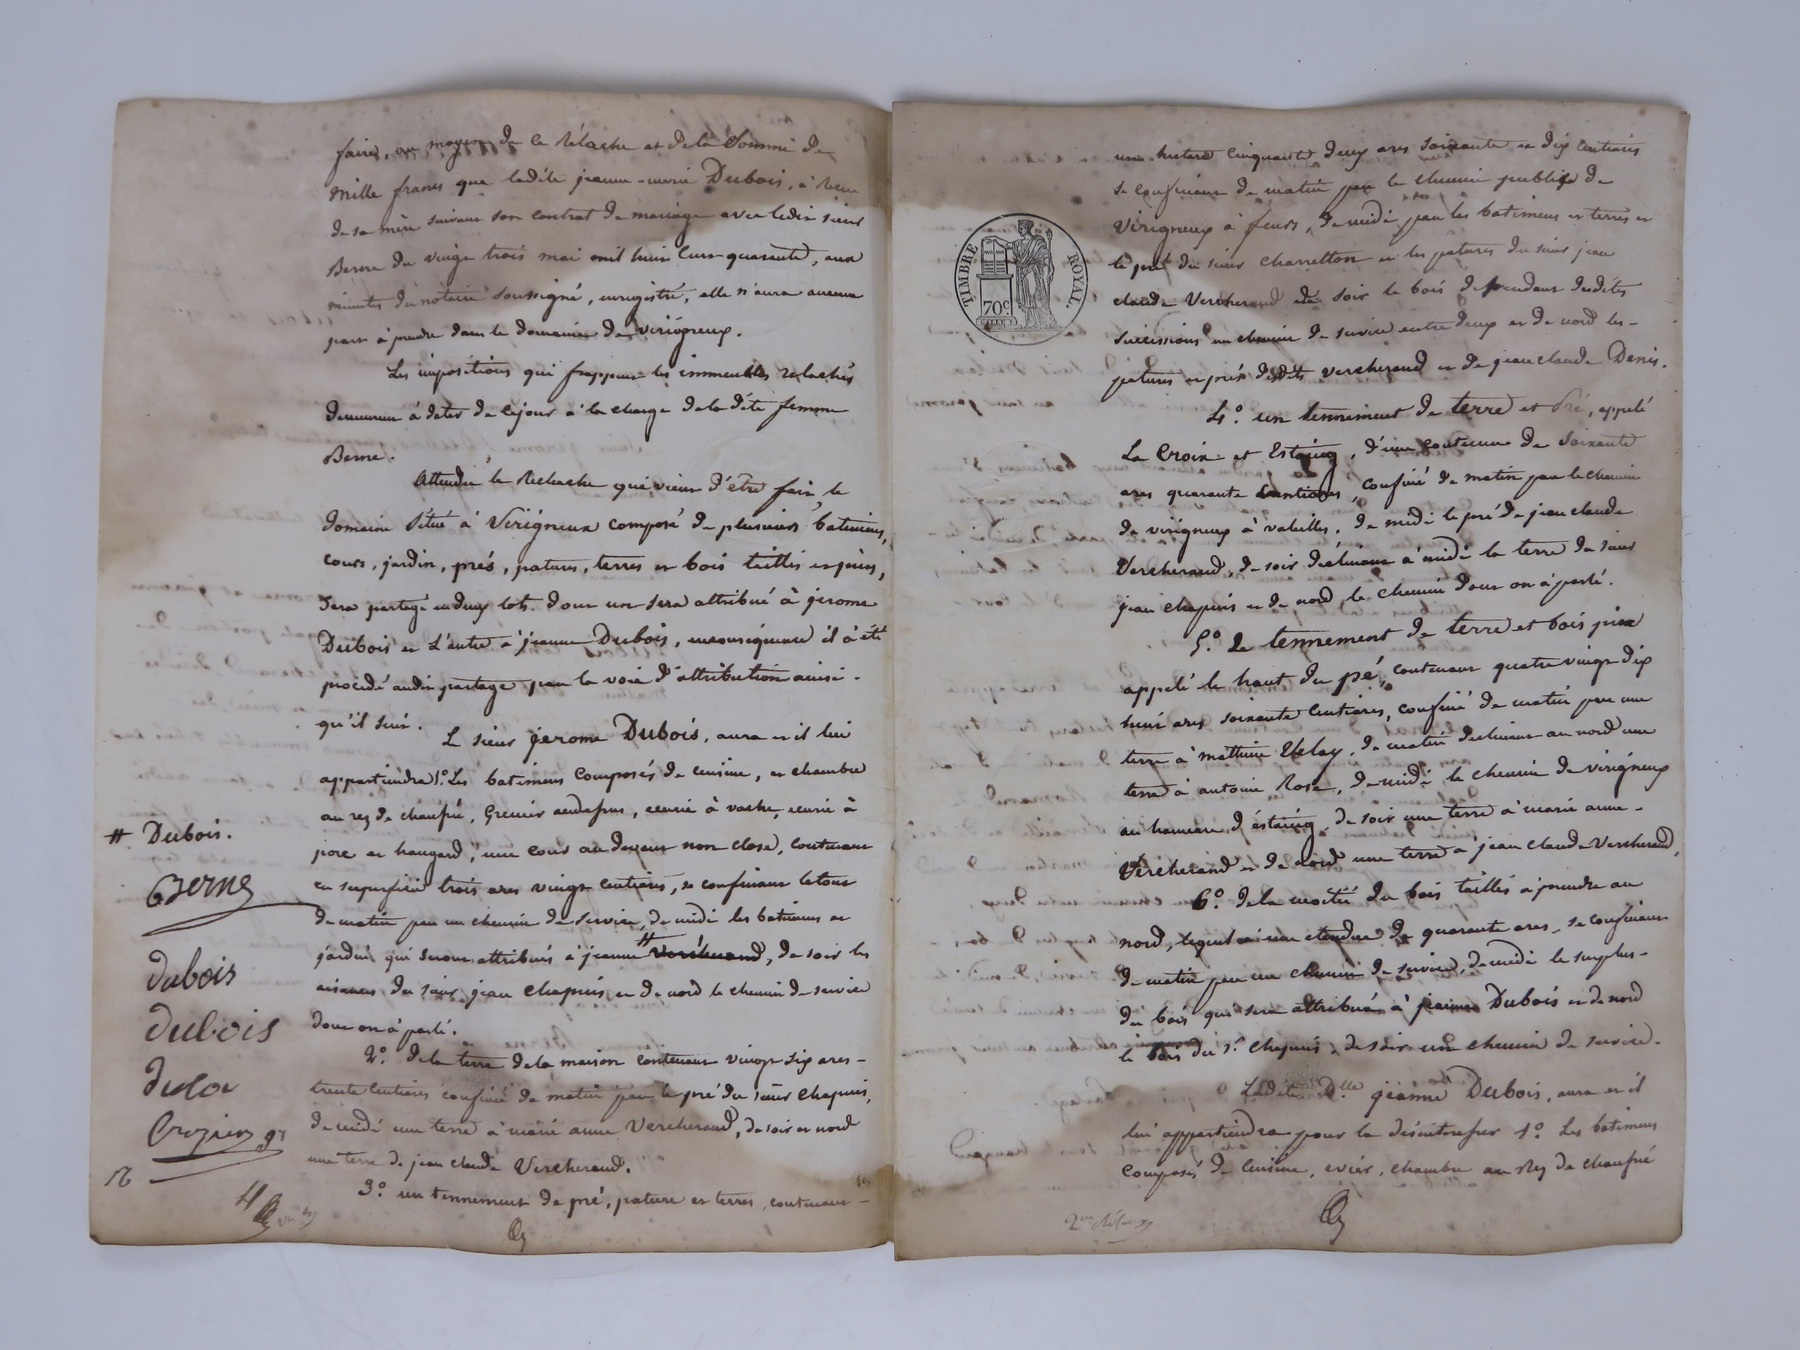 faire, au moyen de ce Relache et de la Somme de
mille francs que ladite jeanne-marie Dubois, à Reçu
de sa mère suivant son contrat de mariage avec ledit sieur
Berne du vingt trois mai mil huit cent quarante, aux
minutes du notaire soussigné, enregistré, elle n'aura aucune
part à prendre dans le domaine de virigneux.
Les impositions qui frappent les immeubles relachés
demeurent à dater de ce jour à la charge de la dite femme
Berne.
Attendu le Relache qui vient d'être fait, le
domaine situé à Virigneux composé de plusieurs batimens,
cours, jardin, prés, patures, terres et bois taillis et pins,
sera partagé en deux lots dont un sera attribué à jerome
Dubois et l'autre à jeanne Dubois, en conséquence il à été
procédé audit partage par la voie d'attribution ainsi-
qu'il suit.
Le sieur jerome Dubois, aura et il lui
appartiendra 1.° Les batimens composés de cuisine, et chambre
au rez de chaussé, Grenier au dessus, ecurie à vache, ecurie à
porc et hangard, une cour au devant non close, contenant
en superficie trois ares vingt centiares, se confinant le tout
de matin par un chemin de service, de midi les batimens et
jardin qui seront attribués à jeanne # Vercherand, de soir les
aisances du sieur jean Chapuis et de nord le chemin de service
dont on à parlé.
2.° de la terre de la maison contenant vingt six ares-
trente centiares confiné de matin par le pré du sieur Chapuis,
de midi une terre à marie anne Vercherand, de soir et nord
une terre de jean claude Vercherand.
3.° un tennement de pré, pature et terres, contenant-
# Dubois.
Berne
dubois
dubois
Crozier
TIMBRE ROYAL.
70c
une hectare cinquante deux ares soixante et dix centiares
se confinant de matin par le chemin public de
Virigneux à feurs, de midi par les batimens et terres et
le pré du sieur Charretton et les patures du sieur jean
claude Vercherand de soir le bois dépendant desdites
successions un chemin de service entre deux et de nord les-
patures et prés desdits vercherand et de jean claude Denis.
4.° un tennement de terre et Pré, appelé
La Croix et Estaing, d'une contenue de soixante
ares quarante Centiares, confiné de matin par le chemin
de virigneux à valeilles, de midi le pré de jean claude
Vercherand, de soir déclinant à midi la terre du sieur
jean chapuis et de nord le chemin dont on à parlé.
5.° Le tennement de terre et bois pin
appelé le haut du pré, contenant quatre vingt dix
huit ares soixante centiares, confiné de matin par une
terre à matthieu Velay, de matin declinant au nord une
terre à antoine Rose, de midi le chemin de virigneux
au hameau d'estaing, de soir une terre à marie anne-
Vercherand et de nord une terre à jean claude Vercherand,
6.° de la moitié du bois taillis à prendre au
nord, lequel à une etendue de quarante ares, se confinant
de matin par un chemin de service, de midi le surplus-
du bois qui sera attribué à jeanne Dubois et de nord
le bois du s.r chapuis, de soir un chemin de service.
Ladite D.lle jeanne Dubois, aura et il
lui appartiendra pour la désintéresser 1.° Les batimens
composés de cuisine, evier, chambre au Rez de chaussé